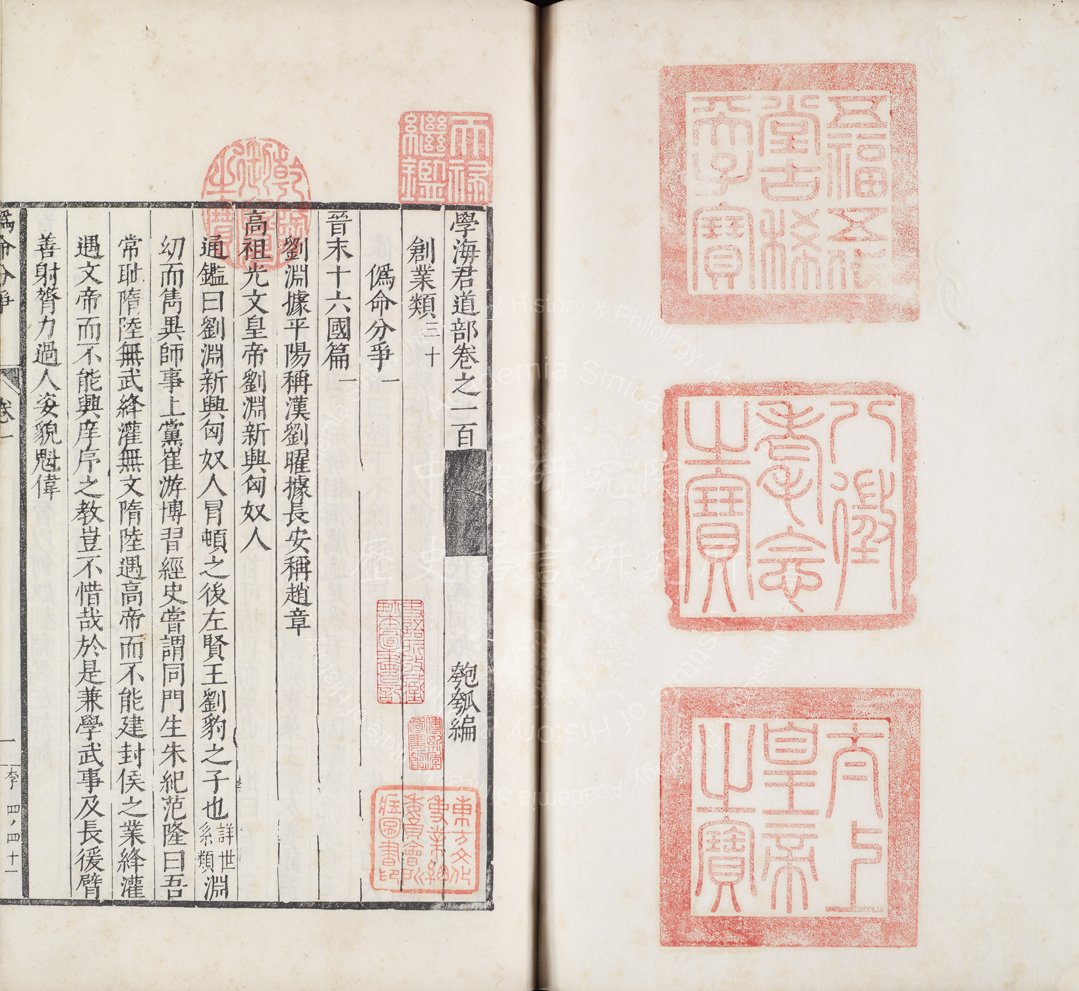 五福五代
堂古稀
天子寶
八徵
耄念
之寶
太上
皇帝
之寶
天祿
繼鑑
乾隆
御覽
之寶
學海君道部卷之一百
匏瓠編
創業類三十
僞命分爭一
晉末十六國篇一
劉淵據平陽稱漢劉曜據長安稱趙章
高祖光文皇帝劉淵新興匈奴人
通鑑曰劉淵新興匈奴人冒頓之後左賢王劉豹之子也詳世系類淵
幼而雋異師事上黨崔游博習經史嘗謂同門生朱紀范隆曰吾
常耻隋陸無武絳灌無文隋陸遇高帝而不能建封侯之業絳灌
遇文帝而不能興庠序之教豈不惜哉於是兼學武事及長猨臂
善射膂力過人姿貌魁偉
東方文化
事業總
委員會所
藏圖書印
僞命分爭
卷一
一
李
四ノ四十一
中央研究院
歷史語言研究所